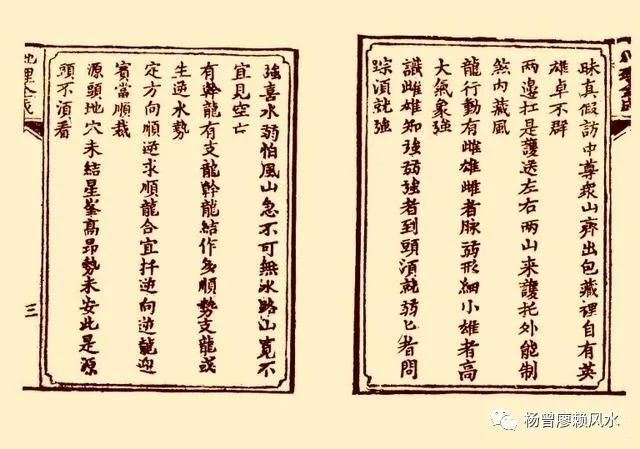 昧真假訪中尊衆山齊出包藏裡自有英
雄卓不群
两邊扛是護送左右两山来護托外能制
煞内藏風
龍行動有雌雄雌者脉弱形細小雄者高
大氣象強
識雌雄知強弱強者到頭湏就弱匕者問
踪湏就強
強喜水弱怕風山急不可無氷路山寬不
宜見空亡
有幹龍有支龍幹龍結作多順勢支龍或
生逆水勢
定方向順逆求順龍合宜扦逆向逆龍迎
賓當順裁
源頭地穴未結星峯高昂勢未安此是源
頭不湏看
三
杨曾廖赖风水